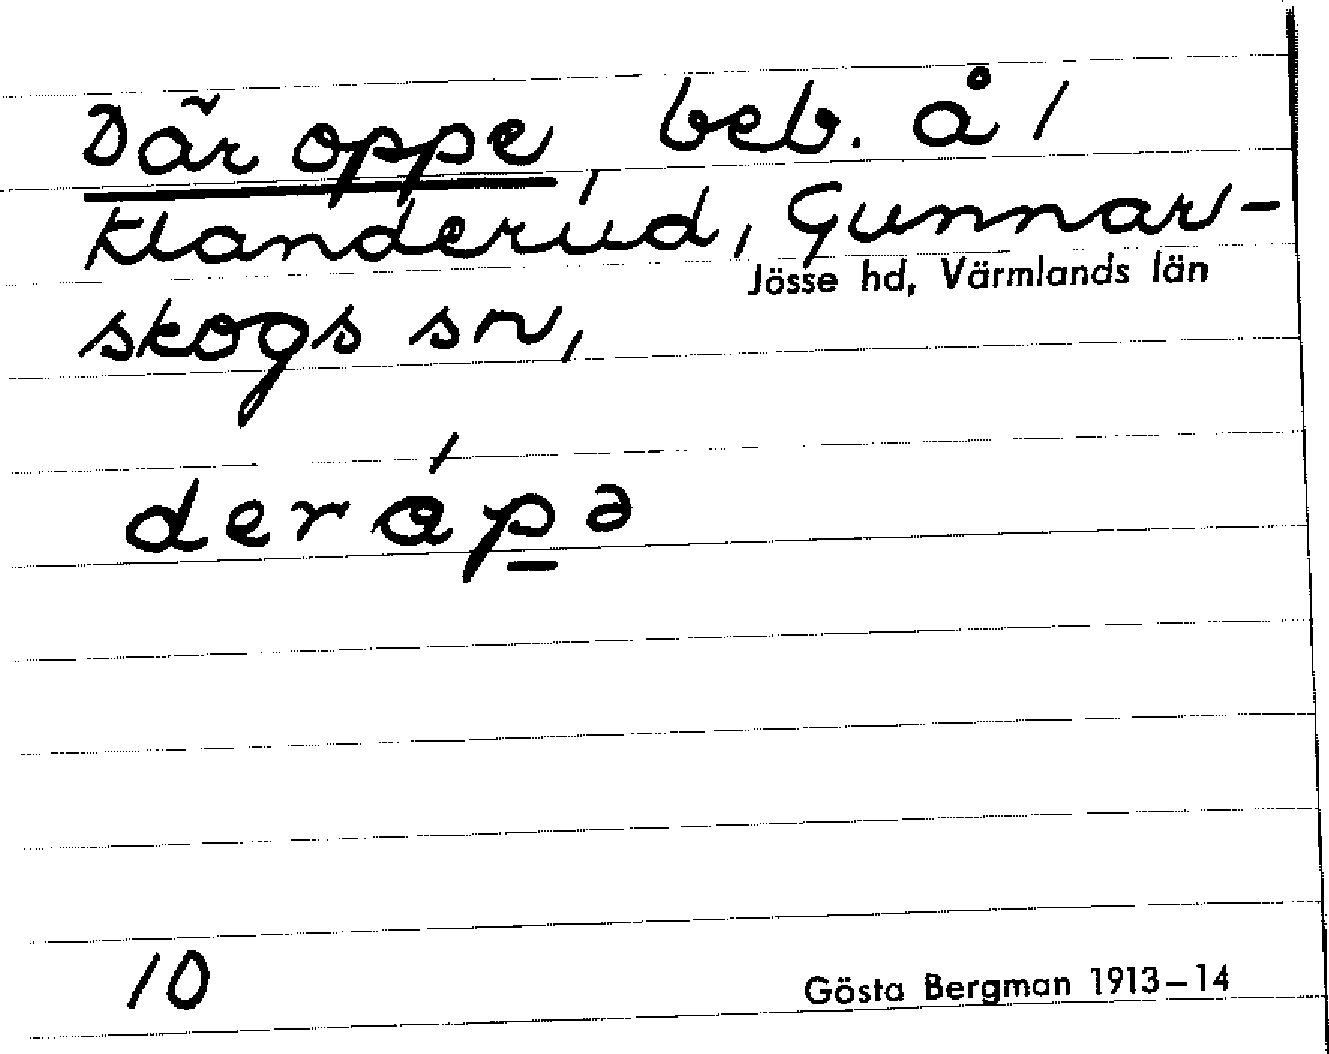 Där oppe, beb. å /
Klanderud, Gunnar-
Jösse hd, Värmlands län
skogs sn,
derápə
10
Gösta Bergman 1913–14